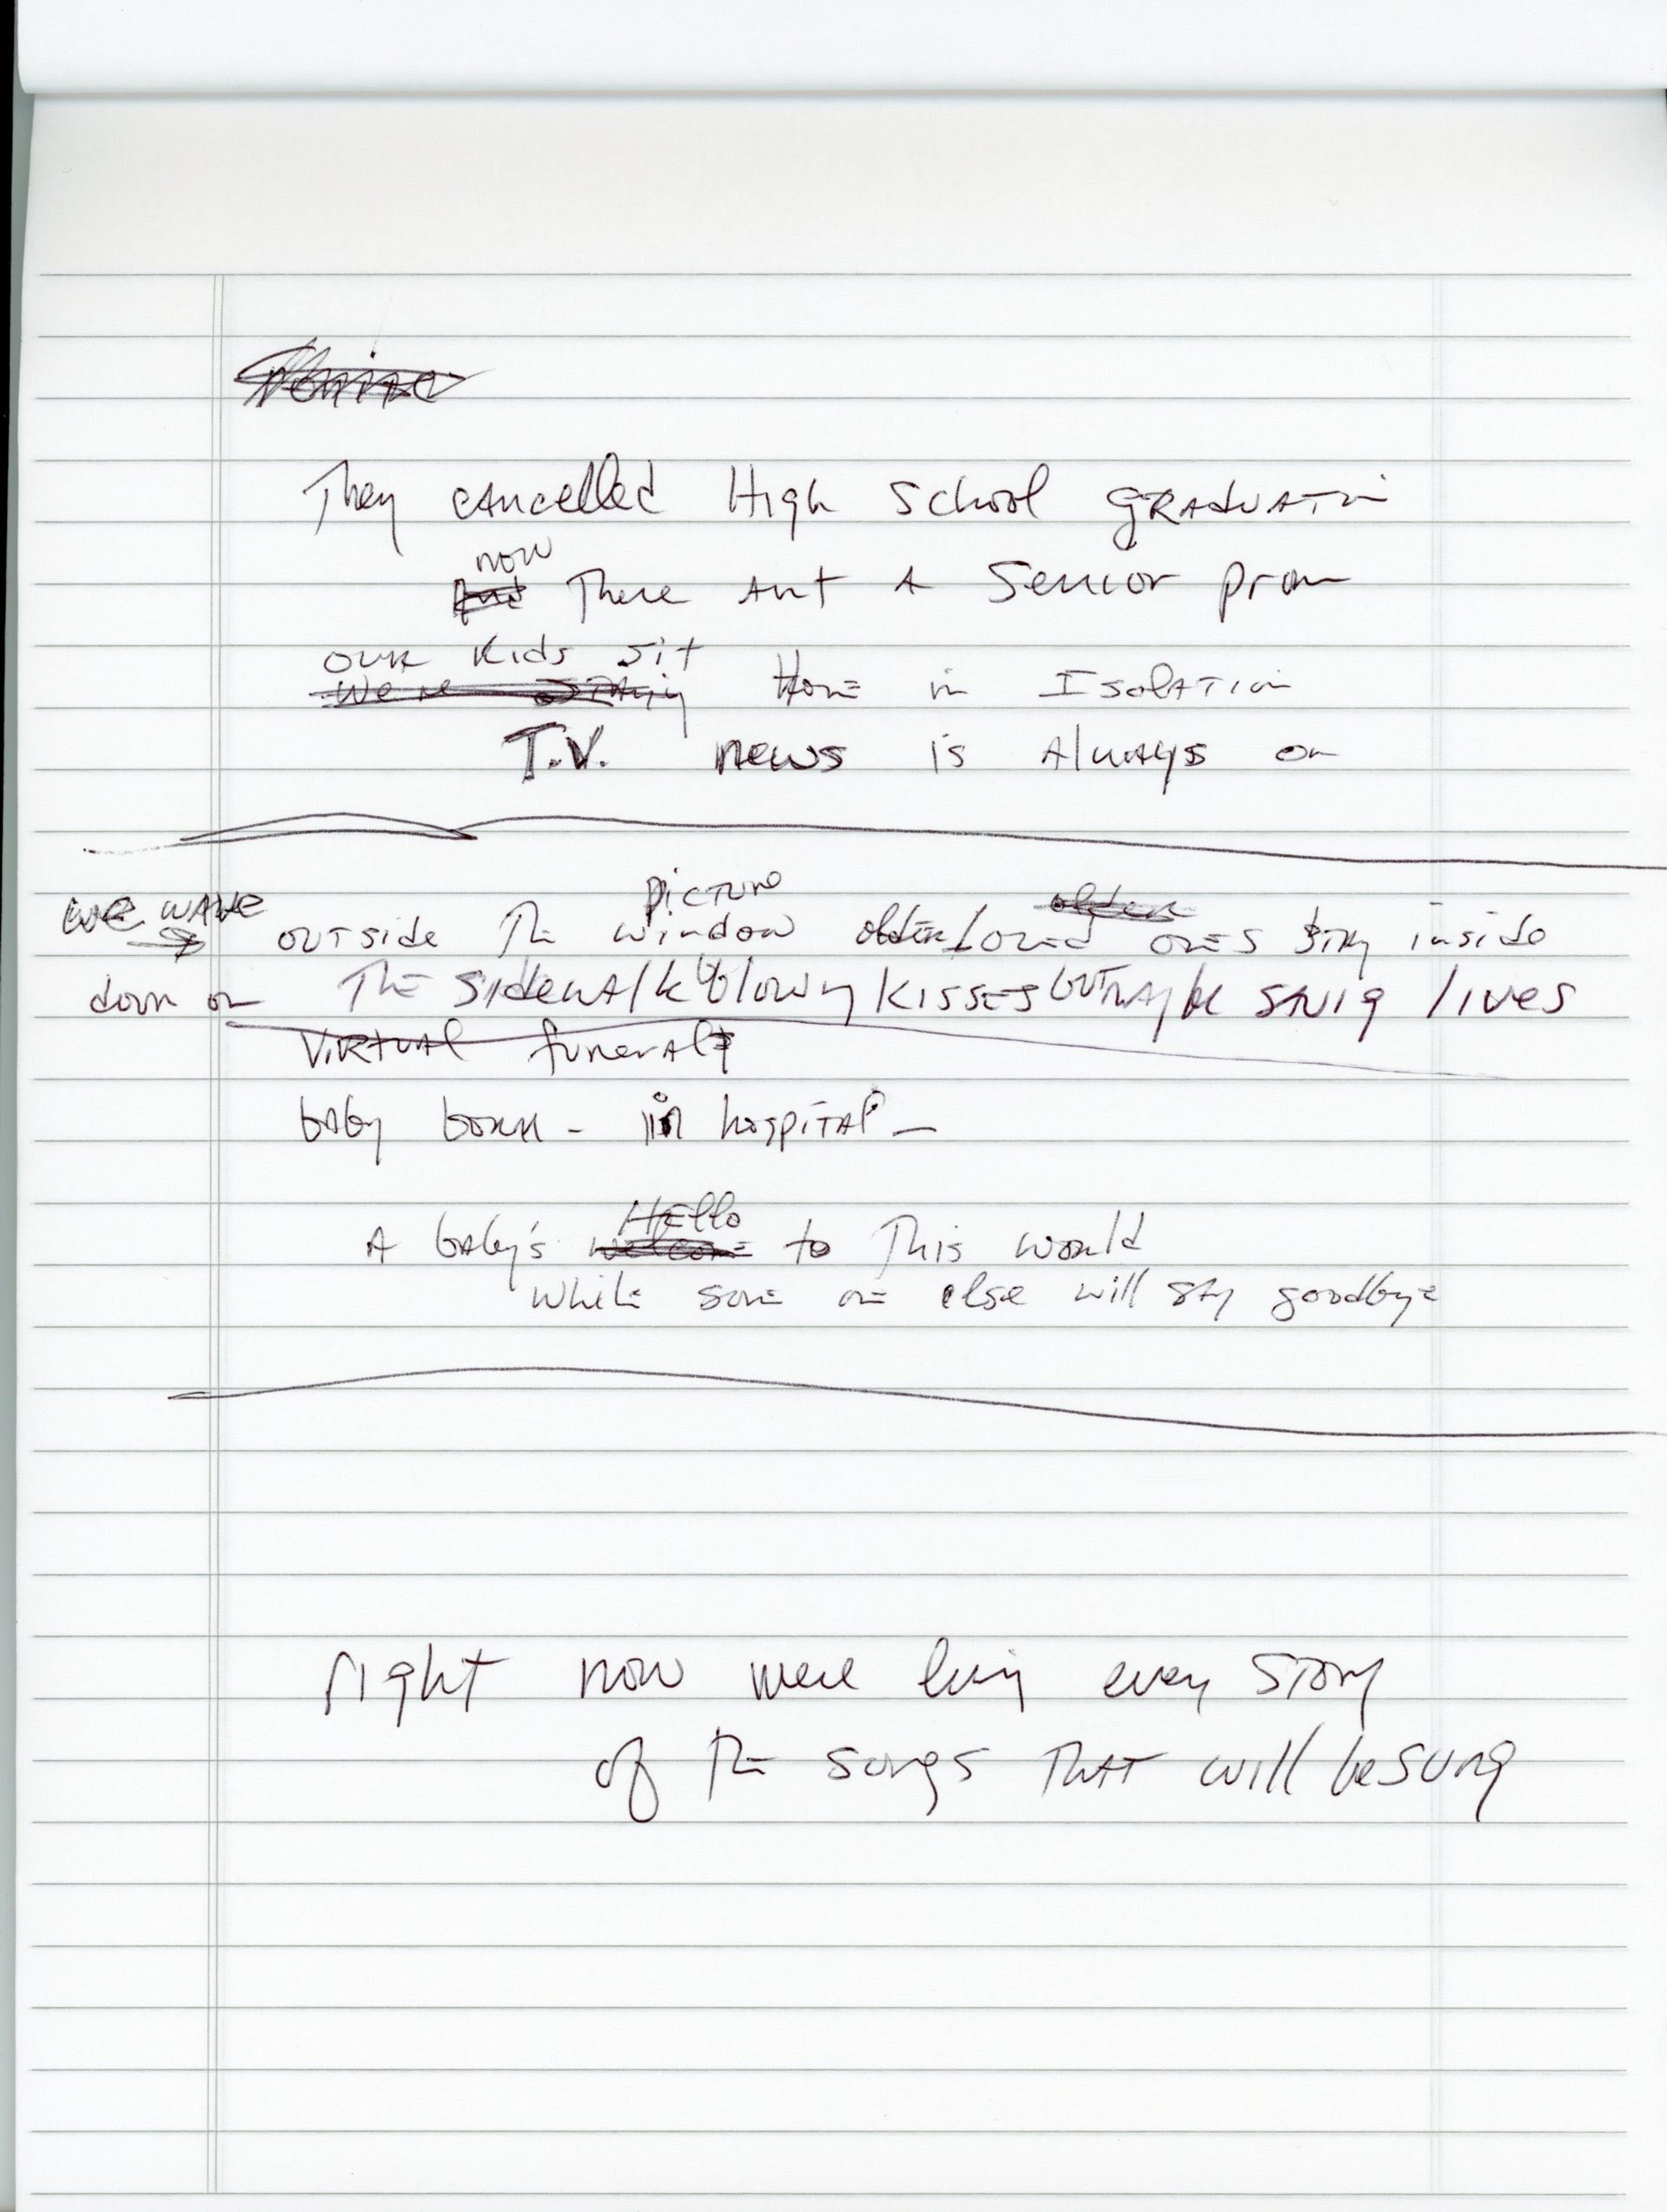 They cancelled High School GRADUATIn
now
And There Ant A Senior prom
our Kids sit
We're sitting Home in IsolATION
T.V. news is Always on
picture older
we wave outside The window older loved ones stay inside
down on The sidewalk blowing kisses but maybe savig lives
VIRTUAL funerals
baby born - in hospital -
Hello
A baby's welcome to This world
while some one else will say goodbye
right now were living every story
of The songs THAT will be sung